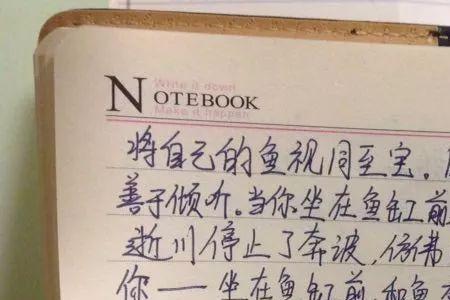 Write it down
NOTEBOOK
Make it happen
将自己的鱼视同至宝。
善于倾听。当你坐在鱼缸前
逝川停止了奔波，仿佛
你——坐在鱼缸前，和鱼